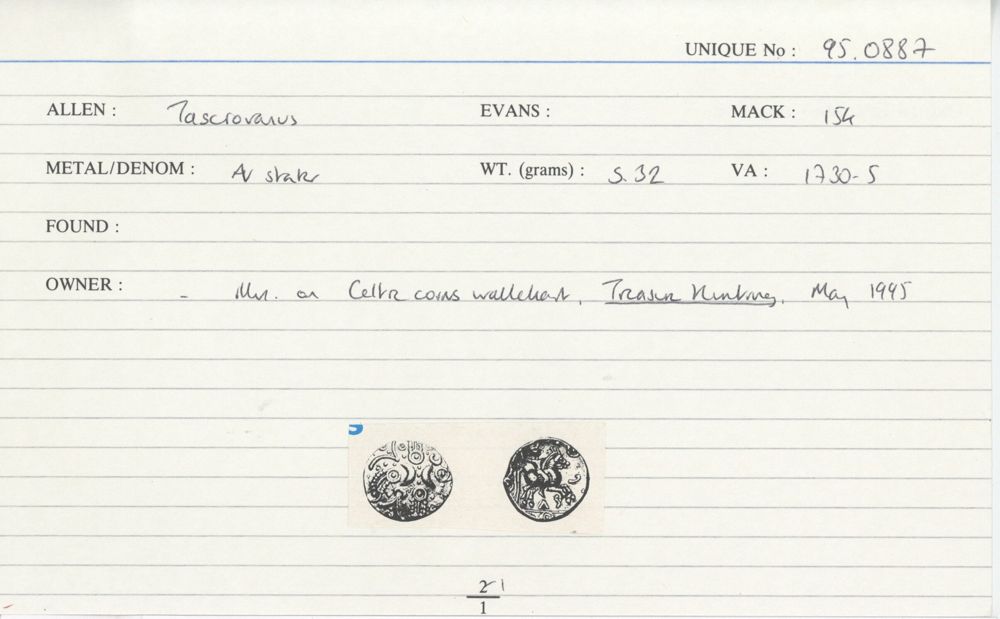 UNIQUE No : 95.0887
ALLEN : Tasciovanus EVANS : MACK : 154
METAL/DENOM : AV stater WT. (grams) : 5.32 VA : 1730-5
FOUND :
OWNER : - Illus. on Celtic coins wallchart, Treasure Hunting, May 1995
21
1